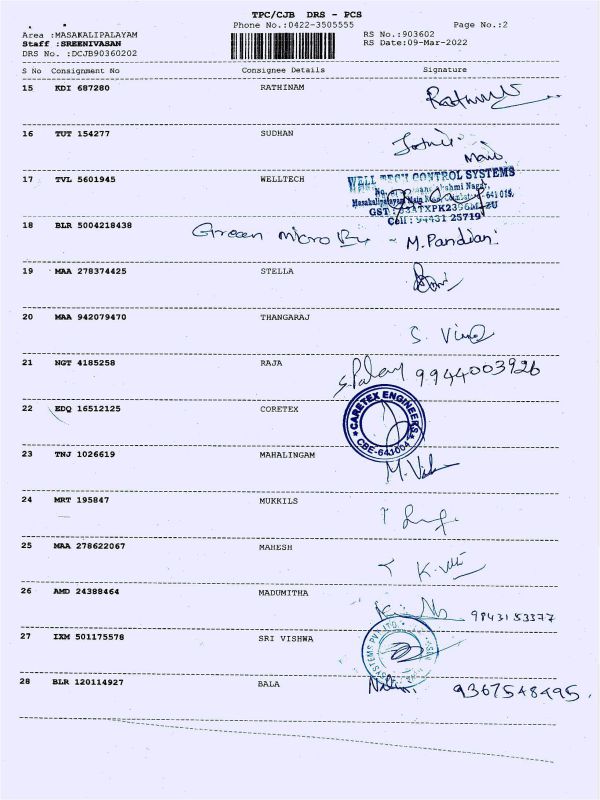 TPC/CJB DRS - PCS
Phone No.:0422-3505555 Page No.:2
Area :MASAKALIPALAYAM RS No.:903602
Staff :SREENIVASAN RS Date:09-Mar-2022
DRS No. :DCJB90360202
S No Consignment No Consignee Details Signature
15 KDI 687280 RATHINAM
16 TUT 154277 SUDHAN
17 TVL 5601945 WELLTECH
WELL TECH CONTROL SYSTEMS
Masakalipalayam Main Road, 641 015.
GST :
Cell : 94431 25719
18 BLR 5004218438 Green micro - M. Pandian
19 MAA 278374425 STELLA
20 MAA 942079470 THANGARAJ
21 NGT 4185258 RAJA 9944003926
22 EDQ 16512125 CORETEX
CARETEX ENGINEERS
CBE-641004
23 TNJ 1026619 MAHALINGAM
24 MRT 195847 MUKKILS
25 MAA 278622067 MAHESH
26 AMD 24388464 MADUMITHA
9843153377
27 IXM 501175578 SRI VISHWA
28 BLR 120114927 BALA 9367548495.